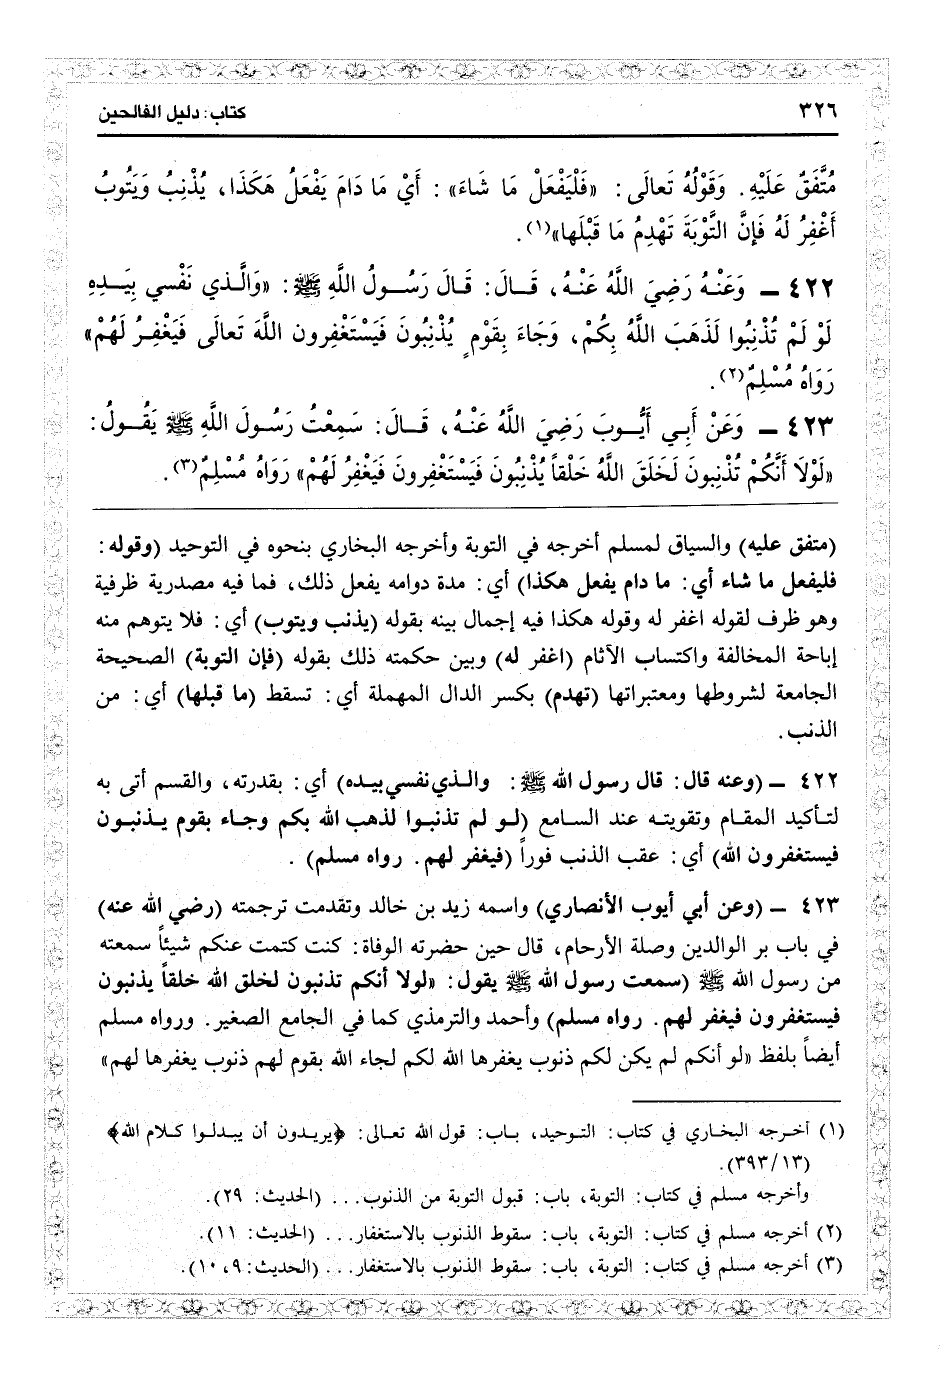 ٣٢٦
كتاب: دليل الفالحين
مُتَّفَقٌ عَلَيْهِ. وَقَوْلُهُ تَعَالَى: «فَلْيَفْعَلْ مَا شَاءَ»: أَيْ مَا دَامَ يَفْعَلُ هَكَذَا، يُذْنِبُ وَيَتُوبُ
أَغْفِرُ لَهُ فَإِنَّ التَّوْبَةَ تَهْدِمُ مَا قَبْلَها»(١).
٤٢٢ ـ وَعَنْهُ رَضِيَ اللَّهُ عَنْهُ، قَالَ: قَالَ رَسُولُ اللَّهِ ﷺ: «وَالَّذي نَفْسي بِيَدِهِ
لَوْ لَمْ تُذْنِبُوا لَذَهَبَ اللَّهُ بِكُمْ، وَجَاءَ بِقَوْمٍ يُذْنِبُونَ فَيَسْتَغْفِرون اللَّهَ تَعالَى فَيَغْفِرُ لَهُمْ»
رَوَاهُ مُسْلِمٌ(٢).
٤٢٣ ـ وَعَنْ أَبِي أَيُّوبَ رَضِيَ اللَّهُ عَنْهُ، قَالَ: سَمِعْتُ رَسُولَ اللَّهِ ﷺ يَقُولُ:
«لَوْلَا أَنَّكُمْ تُذْنِبونَ لَخَلَقَ اللَّهُ خَلْقاً يُذْنِبُونَ فَيَسْتَغْفِرونَ فَيَغْفِرُ لَهُمْ» رَوَاهُ مُسْلِمٌ(٣).
(متفق عليه) والسياق لمسلم أخرجه في التوبة وأخرجه البخاري بنحوه في التوحيد (وقوله:
فليفعل ما شاء أي: ما دام يفعل هكذا) أي: مدة دوامه يفعل ذلك، فما فيه مصدرية ظرفية
وهو ظرف لقوله اغفر له وقوله هكذا فيه إجمال بينه بقوله (يذنب ويتوب) أي: فلا يتوهم منه
إباحة المخالفة واكتساب الآثام (اغفر له) وبين حكمته ذلك بقوله (فإن التوبة) الصحيحة
الجامعة لشروطها ومعتبراتها (تهدم) بكسر الدال المهملة أي: تسقط (ما قبلها) أي: من
الذنب.
٤٢٢ ـ (وعنه قال: قال رسول الله ﷺ: والذي نفسي بيده) أي: بقدرته، والقسم أتى به
لتأكيد المقام وتقويته عند السامع (لو لم تذنبوا لذهب الله بكم وجاء بقوم يذنبون
فيستغفرون الله) أي: عقب الذنب فوراً (فيغفر لهم. رواه مسلم).
٤٢٣ ـ (وعن أبي أيوب الأنصاري) واسمه زيد بن خالد وتقدمت ترجمته (رضي الله عنه)
في باب بر الوالدين وصلة الأرحام، قال حين حضرته الوفاة: كنت كتمت عنكم شيئاً سمعته
من رسول الله ﷺ (سمعت رسول الله ﷺ يقول: «لولا أنكم تذنبون لخلق الله خلقاً يذنبون
فيستغفرون فيغفر لهم. رواه مسلم) وأحمد والترمذي كما في الجامع الصغير. ورواه مسلم
أيضاً بلفظ «لو أنكم لم يكن لكم ذنوب يغفرها الله لكم لجاء الله بقوم لهم ذنوب يغفرها لهم»
(١) أخرجه البخاري في كتاب: التوحيد، باب: قول الله تعالى: ﴿يريدون أن يبدلوا كلام الله﴾
(٣٩٣/١٣).
وأخرجه مسلم في كتاب: التوبة، باب: قبول التوبة من الذنوب... (الحديث: ٢٩).
(٢) أخرجه مسلم في كتاب: التوبة، باب: سقوط الذنوب بالاستغفار... (الحديث: ١١).
(٣) أخرجه مسلم في كتاب: التوبة، باب: سقوط الذنوب بالاستغفار... (الحديث: ٩، ١٠).